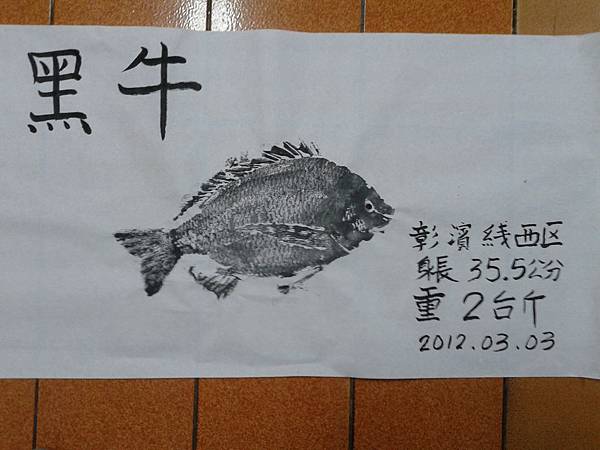 黑牛
彰濱线西区
身長 35.5公分
重 2台斤
2012.03.03